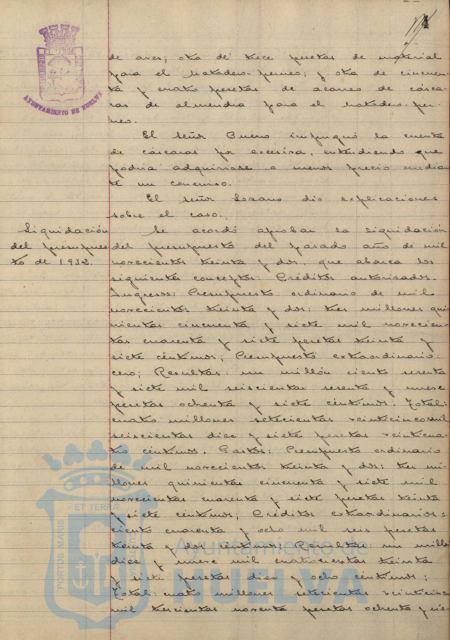 AYUNTAMIENTO DE HUELVA
de aves; otra de trece pesetas de material
para el Matadero-perneo; y otra de cincuen-
ta y cuatro pesetas de acarreo de cásca-
ras de almendra para el Matadero-per-
neo.
El señor Bueno impugnó la cuenta
de cáscaras por excesiva, entendiendo que
podría adquirirse a menos precio median-
te un concurso.
El señor Lozano dio explicaciones
sobre el caso.
Liquidación
del presupues-
to de 1932.
Se acordó aprobar la liquidación
del presupuesto del pasado año de mil
novecientos treinta y dos, que abarca los
siguientes conceptos: Créditos autorizados.
Ingresos: Presupuesto ordinario de mil
novecientos treinta y dos: tres millones qui-
nientas cincuenta y siete mil novecien-
tas cuarenta y siete pesetas treinta y
siete céntimos; Presupuesto extraordinario:
cero; Resultas: un millón ciento sesenta
y siete mil seiscientas sesenta y nueve
pesetas ochenta y siete céntimos. Total:
cuatro millones setecientas veinticinco mil
seiscientas diez y siete pesetas veinticua-
tro céntimos. Gastos: Presupuesto ordinario
de mil novecientos treinta y dos: tres mi-
llones quinientas cincuenta y siete mil
novecientas cuarenta y siete pesetas treinta
y siete céntimos; Créditos extraordinarios:
ciento cuarenta y ocho mil seis pesetas
treinta y dos céntimos; Resultas: un millón
diez y nueve mil cuatrocientas treinta
y siete pesetas diez y ocho céntimos;
Total: cuatro millones setecientas veinticinco
mil trescientas noventa pesetas ochenta y sie-
PORTUS MARIS ET TERRAE
Ayuntamiento de
HUELVA